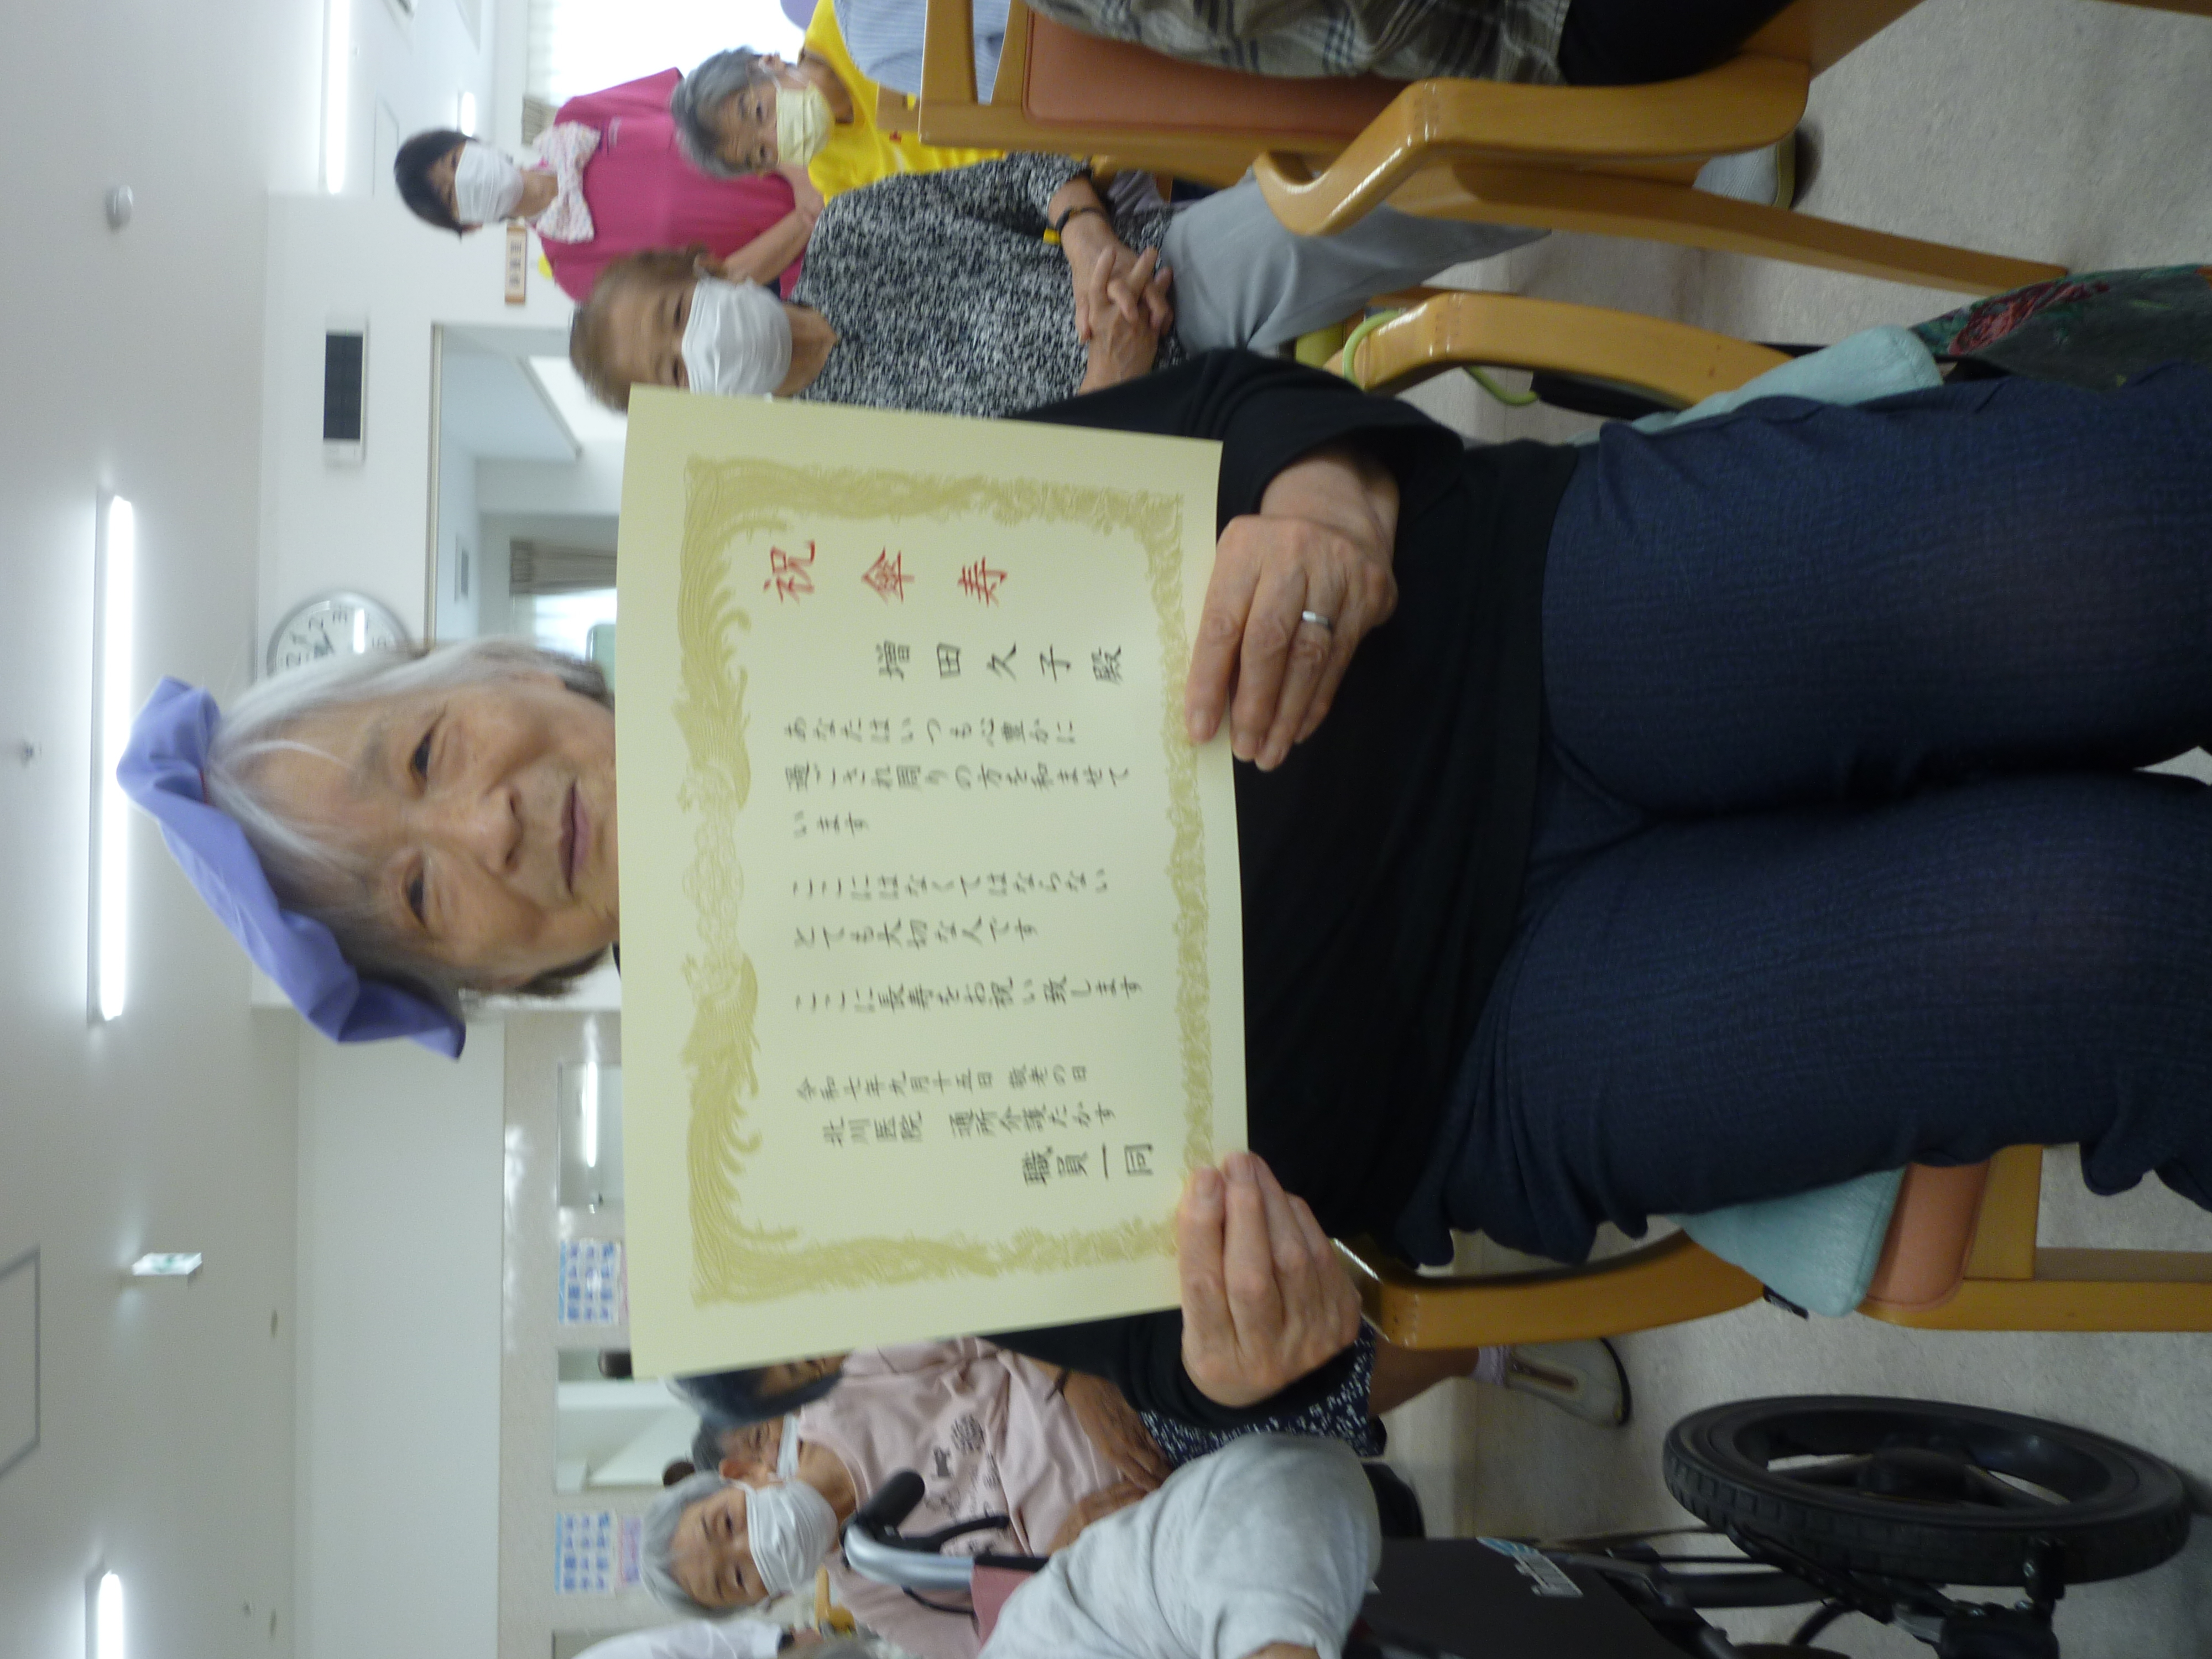 祝傘寿
増田久子殿
あなたはいつも心豊かに
過ごされ周りの方を和ませて
います
ここにはなくてはならない
とても大切な人です
ここに長寿をお祝い致します
令和七年九月十五日 敬老の日
北川医院 通所介護たかす
職員一同